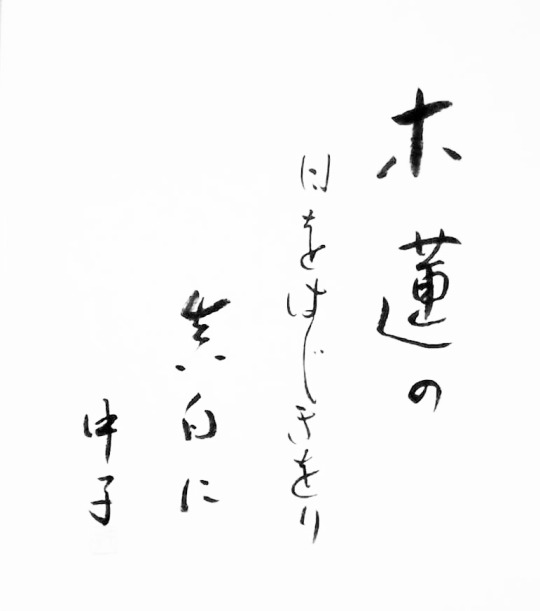 木蓮の
日をはじきをり
真白に